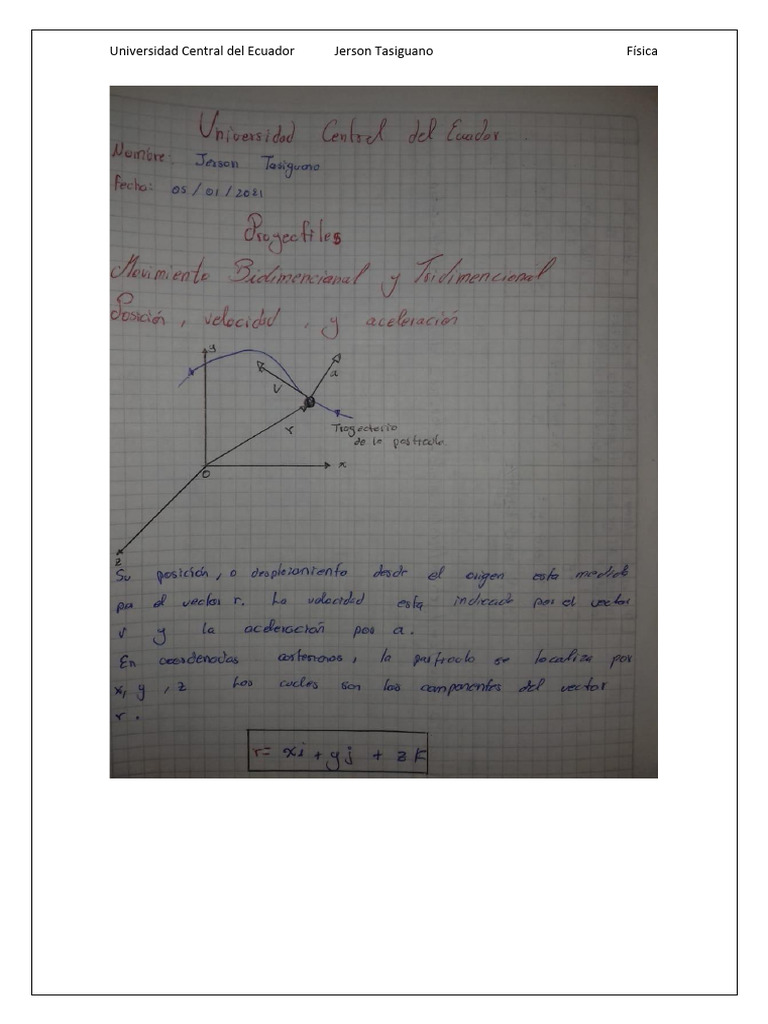 Universidad Central del Ecuador Jerson Tasiguano Física
Universidad Central del Ecuador
Nombre: Jerson Tasiguano
Fecha: 05/01/2021
Proyectiles
Movimiento Bidimencional y Tridimencional
Posición, velocidad, y aceleración
y
a
V
r
Trayectoria
de la particula.
x
O
z
Su posición, o desplazamiento desde el origen esta medido
por el vector r. La velocidad esta indicado por el vector
v y la aceleración por a.
En coordenadas cartesianas, la particula se localiza por
x, y, z Los cuales son las componentes del vector
r.
r= xi + yj + zk